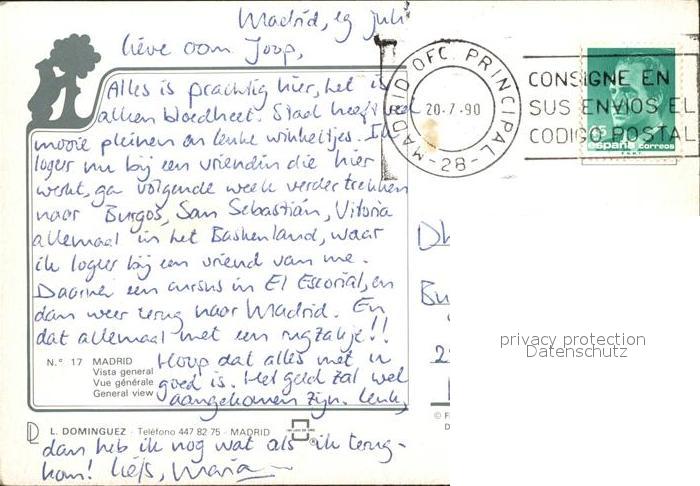 Madrid, 19 juli
lieve oom Joop,
Alles is prachtig hier, het is
alleen bloedheet. Stad heeft veel
mooie pleinen en leuke winkeltjes. Ik
logeer nu bij een vriendin die hier
werkt, ga volgende week verder trekken
naar Burgos, San Sebastián, Vitoria
allemaal in het Baskenland, waar
ik logeer bij een vriend van me.
Daarna een cursus in El Escorial, en
dan weer terug naar Madrid. En
dat allemaal met een rugzakje!!
Hoop dat alles met u
goed is. Het geld zal wel
aangekomen zijn. Leuk,
dan heb ik nog wat als ik terug-
kom! liefs, Maria
N.º 17 MADRID
Vista general
Vue générale
General view
L. DOMINGUEZ - Teléfono 447 82 75 - MADRID
MADRID OFC. PRINCIPAL
20-7-90
-28-
CONSIGNE EN
SUS ENVIOS EL
CODIGO POSTAL
españa correos
Dh
Bu
2
© F
D
privacy protection
Datenschutz